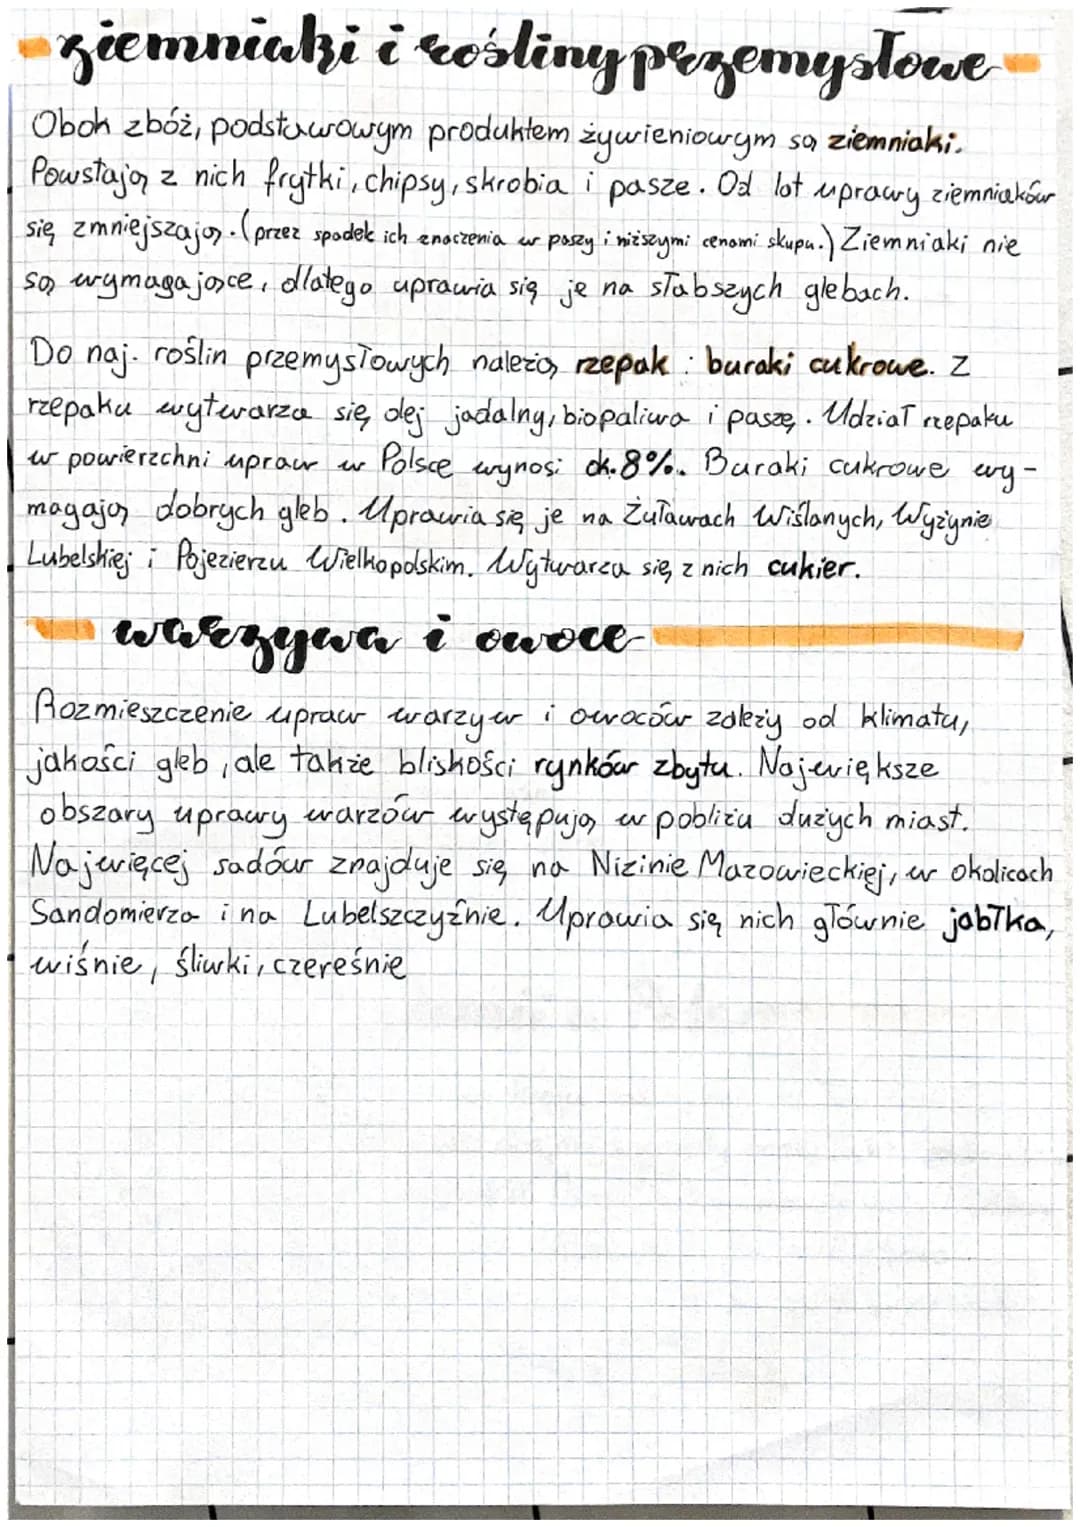 ziemniaki i rośliny przemysłowe
Obok zbóż, podstawowym produktem żywieniowym są ziemniaki.
Powstają z nich frytki, chipsy, skrobia i pasze. Od lat uprawy ziemniaków
się zmniejszają. (przez spadek ich znaczenia w paszy i niższymi cenami skupu.) Ziemniaki nie
są wymagające, dlatego uprawia się je na słabszych glebach.
Do naj. roślin przemysłowych należią rzepak i buraki cukrowe. Z
rzepaku wytwarza się olej jadalny, biopaliwa i paszę. Udział rzepaku
w powierzchni upraw w Polsce wynosi ok. 8%. Buraki cukrowe wy-
magają dobrych gleb. Uprawia się je na Żuławach Wiślanych, Wyżynie
Lubelskiej i Pojezierzu Wielkopolskim. Wytwarza się z nich cukier.
warzywa i owoce
Rozmieszczenie upraw warzyw i owoców zależy od klimatu,
jakości gleb, ale także bliskości rynków zbytu. Największe
obszary uprawy warzów występują w pobliżu dużych miast.
Najwięcej sadów znajduje się na Nizinie Mazowieckiej, w okolicach
Sandomierza i na Lubelszczyźnie. Uprawia się nich głównie jabłka,
wiśnie, śliwki, czereśnie